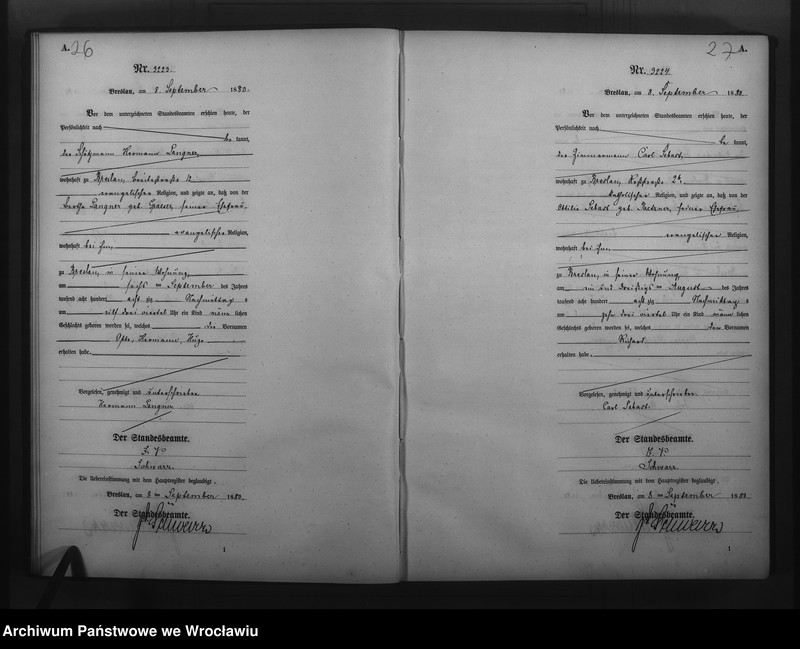 A. 26
Nr. 3223.
Breslau, am 8. September 1880.
Vor dem unterzeichneten Standesbeamten erschien heute, der
Persönlichkeit nach
be kannt,
der Schutzmann Hermann Langner,
wohnhaft zu Breslau, Breitestraße 12
evangelischer Religion, und zeigte an, daß von der
Langner geb. seiner Ehefrau,
evangelischer Religion,
wohnhaft bei ihm,
zu Breslau, in seiner Wohnung,
am sechs ten September des Jahres
tausend acht hundert acht zig Nachmittag s
um elf drei viertel Uhr ein Kind männ lichen
Geschlechts geboren worden sei, welches die Vornamen
Otto, Hermann, Hugo
erhalten habe.
Vorgelesen, genehmigt und unterschrieben
Hermann Langner
Der Standesbeamte.
J. V.
Schwarz.
Die Uebereinstimmung mit dem Hauptregister beglaubigt,
Breslau, am 8 ten September 1880.
Der Standesbeamte.
1
27 A.
Nr. 3224.
Breslau, am 8. September 1880.
Vor dem unterzeichneten Standesbeamten erschien heute, der
Persönlichkeit nach
be kannt,
der Zimmermann Carl
wohnhaft zu Breslau,
katholischer Religion, und zeigte an, daß von der
Ottilie geb. seiner Ehefrau,
evangelischer Religion,
wohnhaft bei ihm,
zu Breslau, in seiner Wohnung,
am ein und dreißigsten August des Jahres
tausend acht hundert acht zig Nachmittag s
um zehn drei viertel Uhr ein Kind männ lichen
Geschlechts geboren worden sei, welches den Vornamen
Richard
erhalten habe.
Vorgelesen, genehmigt und unterschrieben
Carl
Der Standesbeamte.
J. V.
Schwarz
Die Uebereinstimmung mit dem Hauptregister beglaubigt,
Breslau, am 8 ten September 1880.
Der Standesbeamte.
1
Archiwum Państwowe we Wrocławiu